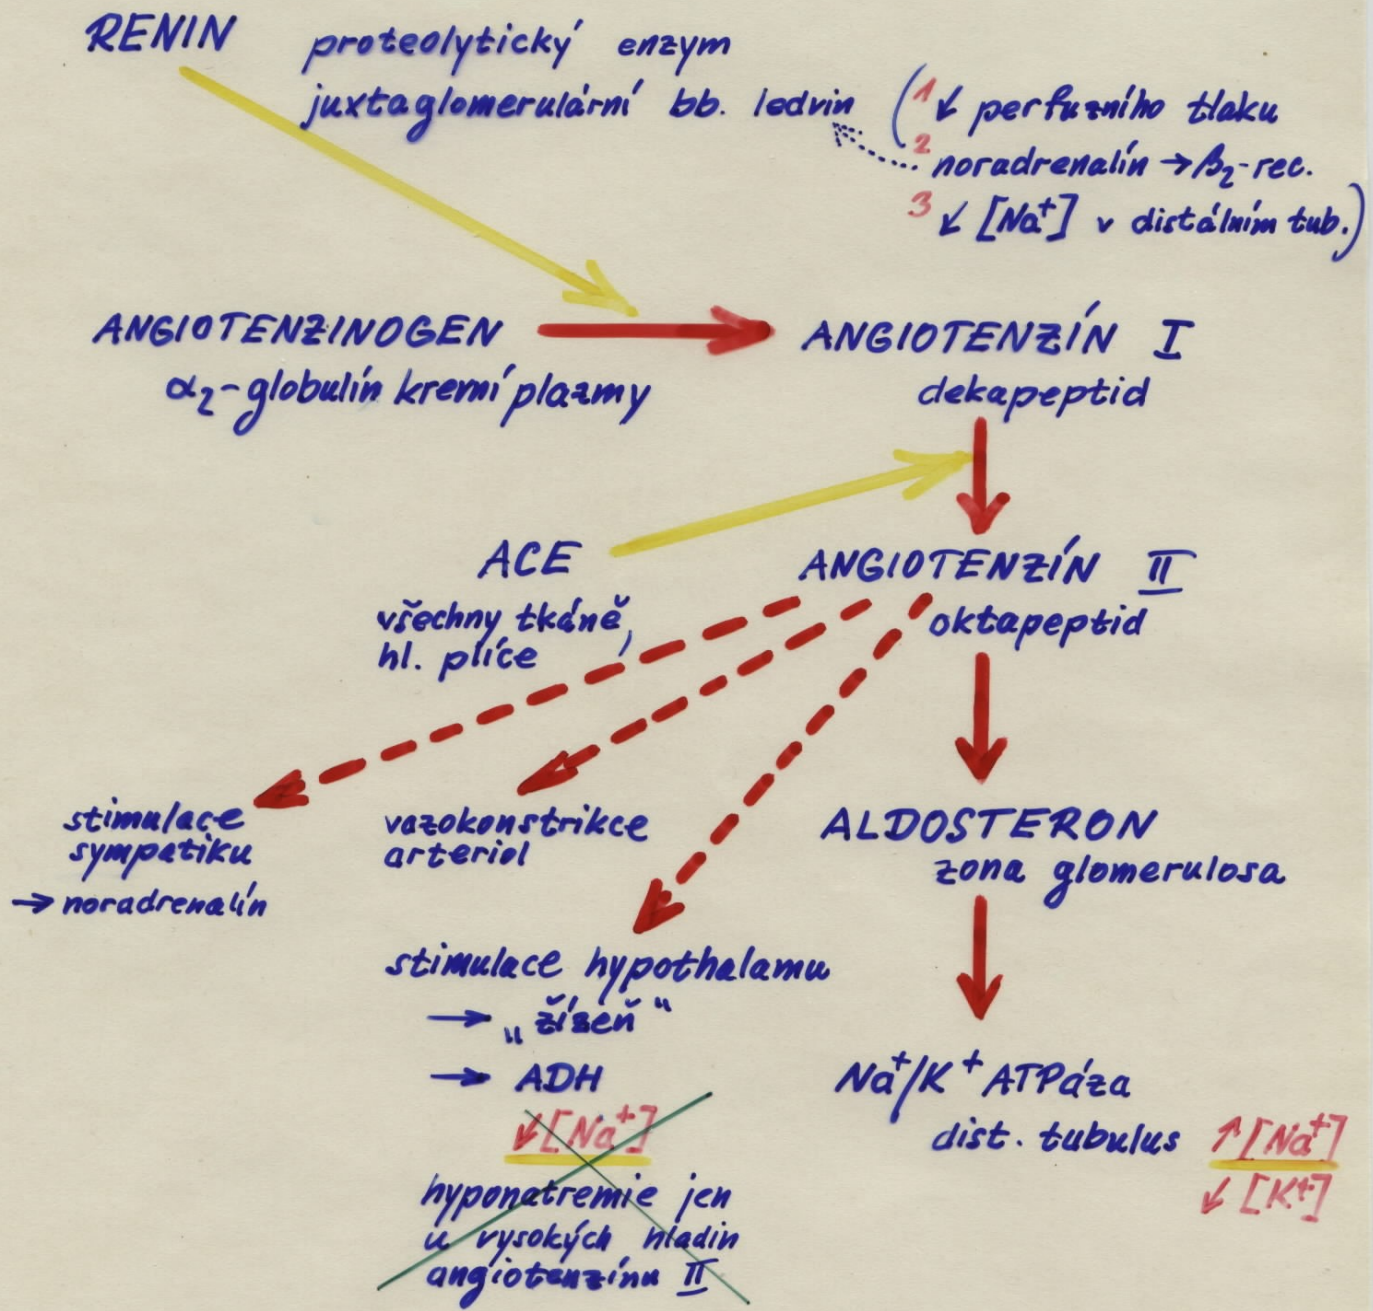 RENIN proteolytický enzym
juxtaglomerulární bb. ledvin
(1 ↙ perfuzního tlaku
2 noradrenalín → β₂-rec.
3 ↙ [Na⁺] v distálním tub.)
ANGIOTENZINOGEN
α₂-globulín krevní plazmy
ANGIOTENZÍN I
dekapeptid
ACE
všechny tkáně,
hl. plíce
ANGIOTENZÍN II
oktapeptid
stimulace
sympatiku
→ noradrenalín
vazokonstrikce
arteriol
ALDOSTERON
zona glomerulosa
stimulace hypothalamu
→ „žízeň“
→ ADH
↙ [Na⁺]
hyponatremie jen
u vysokých hladin
angiotenzínu II
Na⁺/K⁺ ATPáza
dist. tubulus
↗ [Na⁺]
↙ [K⁺]